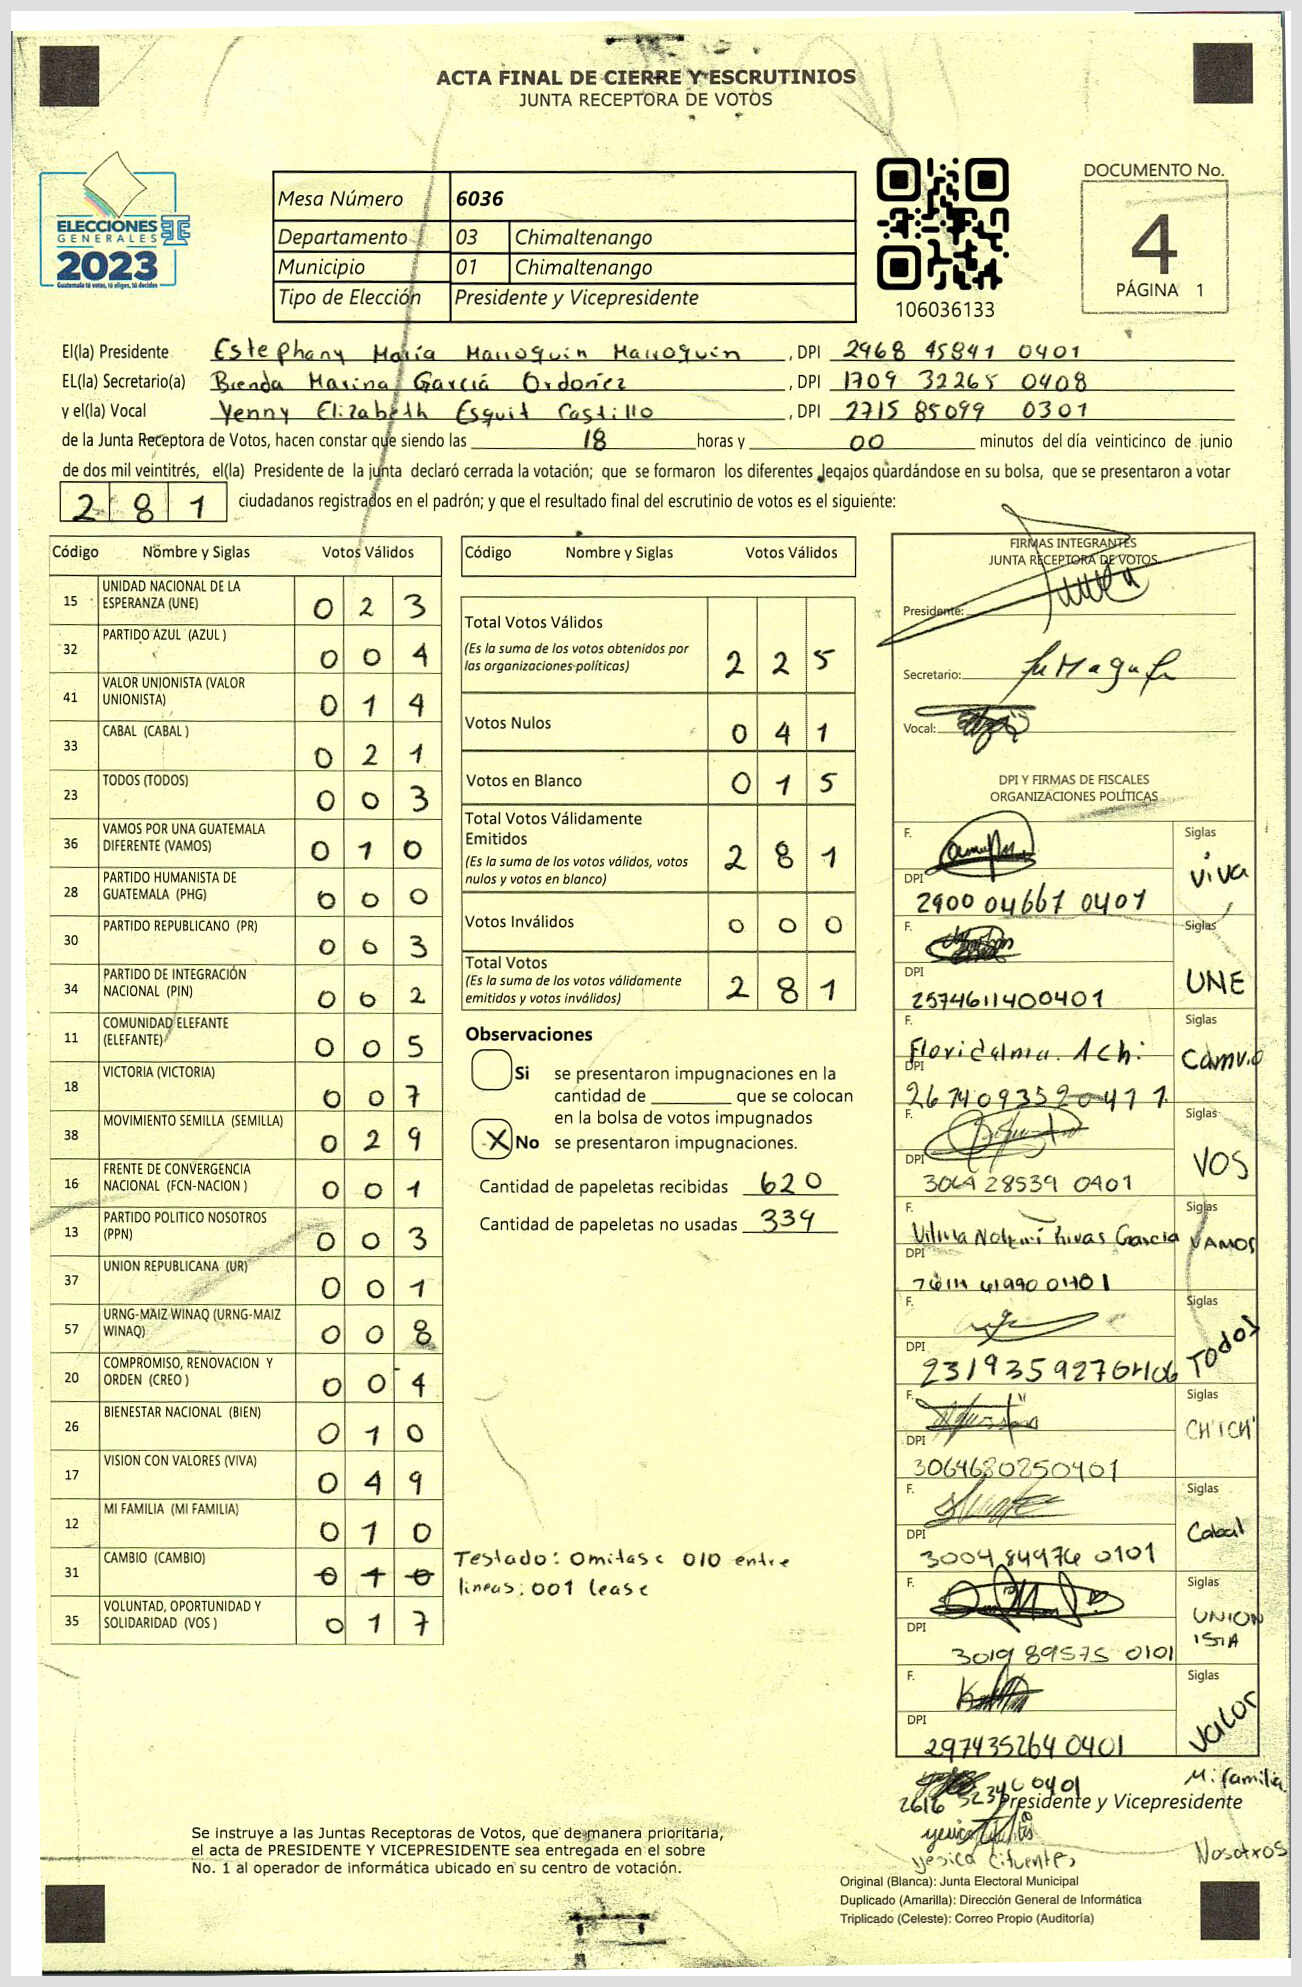 ACTA FINAL DE CIERRE Y ESCRUTINIOS
JUNTA RECEPTORA DE VOTOS
ELECCIONES
GENERALES
2023
Guatemala tú votas, tú eliges, tú decides
Mesa Número 6036
Departamento 03 Chimaltenango
Municipio 01 Chimaltenango
Tipo de Elección Presidente y Vicepresidente
106036133
DOCUMENTO No.
4
PÁGINA 1
El(la) Presidente Estephany María Marroquin Marroquin, DPI 2968 45841 0401
EL(la) Secretario(a) Brenda Marina García Ordoñez, DPI 1709 32265 0408
y el(la) Vocal Yenny Elizabeth Esquit Castillo, DPI 2715 85099 0301
de la Junta Receptora de Votos, hacen constar que siendo las 18 horas y 00 minutos del día veinticinco de junio
de dos mil veintitrés, el(la) Presidente de la junta declaró cerrada la votación; que se formaron los diferentes legajos guardándose en su bolsa, que se presentaron a votar
281 ciudadanos registrados en el padrón; y que el resultado final del escrutinio de votos es el siguiente:
Código Nombre y Siglas Votos Válidos
15 UNIDAD NACIONAL DE LA ESPERANZA (UNE) 023
32 PARTIDO AZUL (AZUL ) 004
41 VALOR UNIONISTA (VALOR UNIONISTA) 014
33 CABAL (CABAL ) 021
23 TODOS (TODOS) 003
36 VAMOS POR UNA GUATEMALA DIFERENTE (VAMOS) 010
28 PARTIDO HUMANISTA DE GUATEMALA (PHG) 000
30 PARTIDO REPUBLICANO (PR) 003
34 PARTIDO DE INTEGRACIÓN NACIONAL (PIN) 002
11 COMUNIDAD ELEFANTE (ELEFANTE) 005
18 VICTORIA (VICTORIA) 007
38 MOVIMIENTO SEMILLA (SEMILLA) 029
16 FRENTE DE CONVERGENCIA NACIONAL (FCN-NACION ) 001
13 PARTIDO POLITICO NOSOTROS (PPN) 003
37 UNION REPUBLICANA (UR) 001
57 URNG-MAIZ WINAQ (URNG-MAIZ WINAQ) 008
20 COMPROMISO, RENOVACION Y ORDEN (CREO ) 004
26 BIENESTAR NACIONAL (BIEN) 010
17 VISION CON VALORES (VIVA) 049
12 MI FAMILIA (MI FAMILIA) 010
31 CAMBIO (CAMBIO) 010
35 VOLUNTAD, OPORTUNIDAD Y SOLIDARIDAD (VOS ) 017
Código Nombre y Siglas Votos Válidos
Total Votos Válidos
(Es la suma de los votos obtenidos por
las organizaciones políticas) 225
Votos Nulos 041
Votos en Blanco 015
Total Votos Válidamente
Emitidos
(Es la suma de los votos válidos, votos
nulos y votos en blanco) 281
Votos Inválidos 000
Total Votos
(Es la suma de los votos válidamente
emitidos y votos inválidos) 281
Observaciones
Si se presentaron impugnaciones en la
cantidad de que se colocan
en la bolsa de votos impugnados
X No se presentaron impugnaciones.
Cantidad de papeletas recibidas 620
Cantidad de papeletas no usadas 339
Testado: Omitase 010 entre
lineas: 001 lease
FIRMAS INTEGRANTES
JUNTA RECEPTORA DE VOTOS
Presidente:
Secretario:
Vocal:
DPI Y FIRMAS DE FISCALES
ORGANIZACIONES POLÍTICAS
F. Siglas
viva
DPI
2900 04667 0401
F. Siglas
UNE
DPI
2574611400401
F. Siglas
Floridalma. Achi
DPI
2674093520477
F. Siglas
VOS
DPI
3064 28539 0401
F. Siglas
Vilma Nohemí Rivas García VAMOS
DPI
F. Siglas
Todos
DPI
F. Siglas
DPI
3064680250401
F. Siglas
Cabal
DPI
3004 84976 0101
F. Siglas
UNION
ISTA
DPI
3019 89575 0101
F. Siglas
Valor
DPI
297435264 0401
Mi familia
Presidente y Vicepresidente
yesica Cifuentes
Nosotros
Se instruye a las Juntas Receptoras de Votos, que de manera prioritaria,
el acta de PRESIDENTE Y VICEPRESIDENTE sea entregada en el sobre
No. 1 al operador de informática ubicado en su centro de votación.
Original (Blanca): Junta Electoral Municipal
Duplicado (Amarilla): Dirección General de Informática
Triplicado (Celeste): Correo Propio (Auditoría)